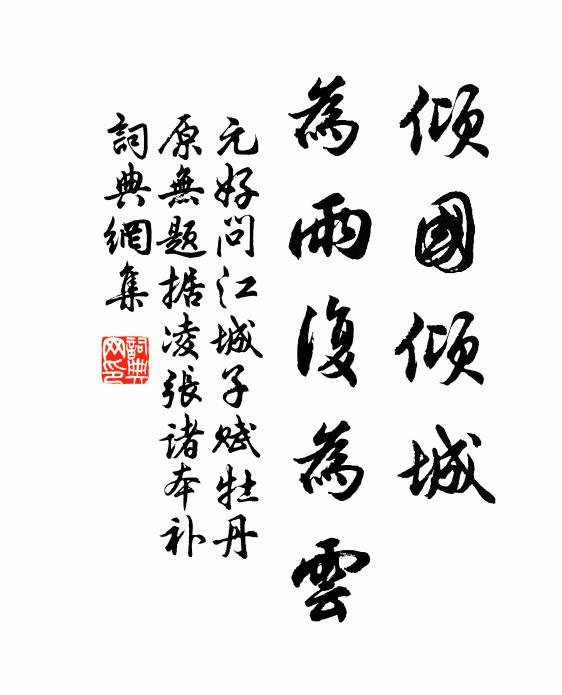 傾國傾城
為雨復為雲
元好问江城子赋牡丹
原無题据凌張诸本补
詞典網集
詞典网印